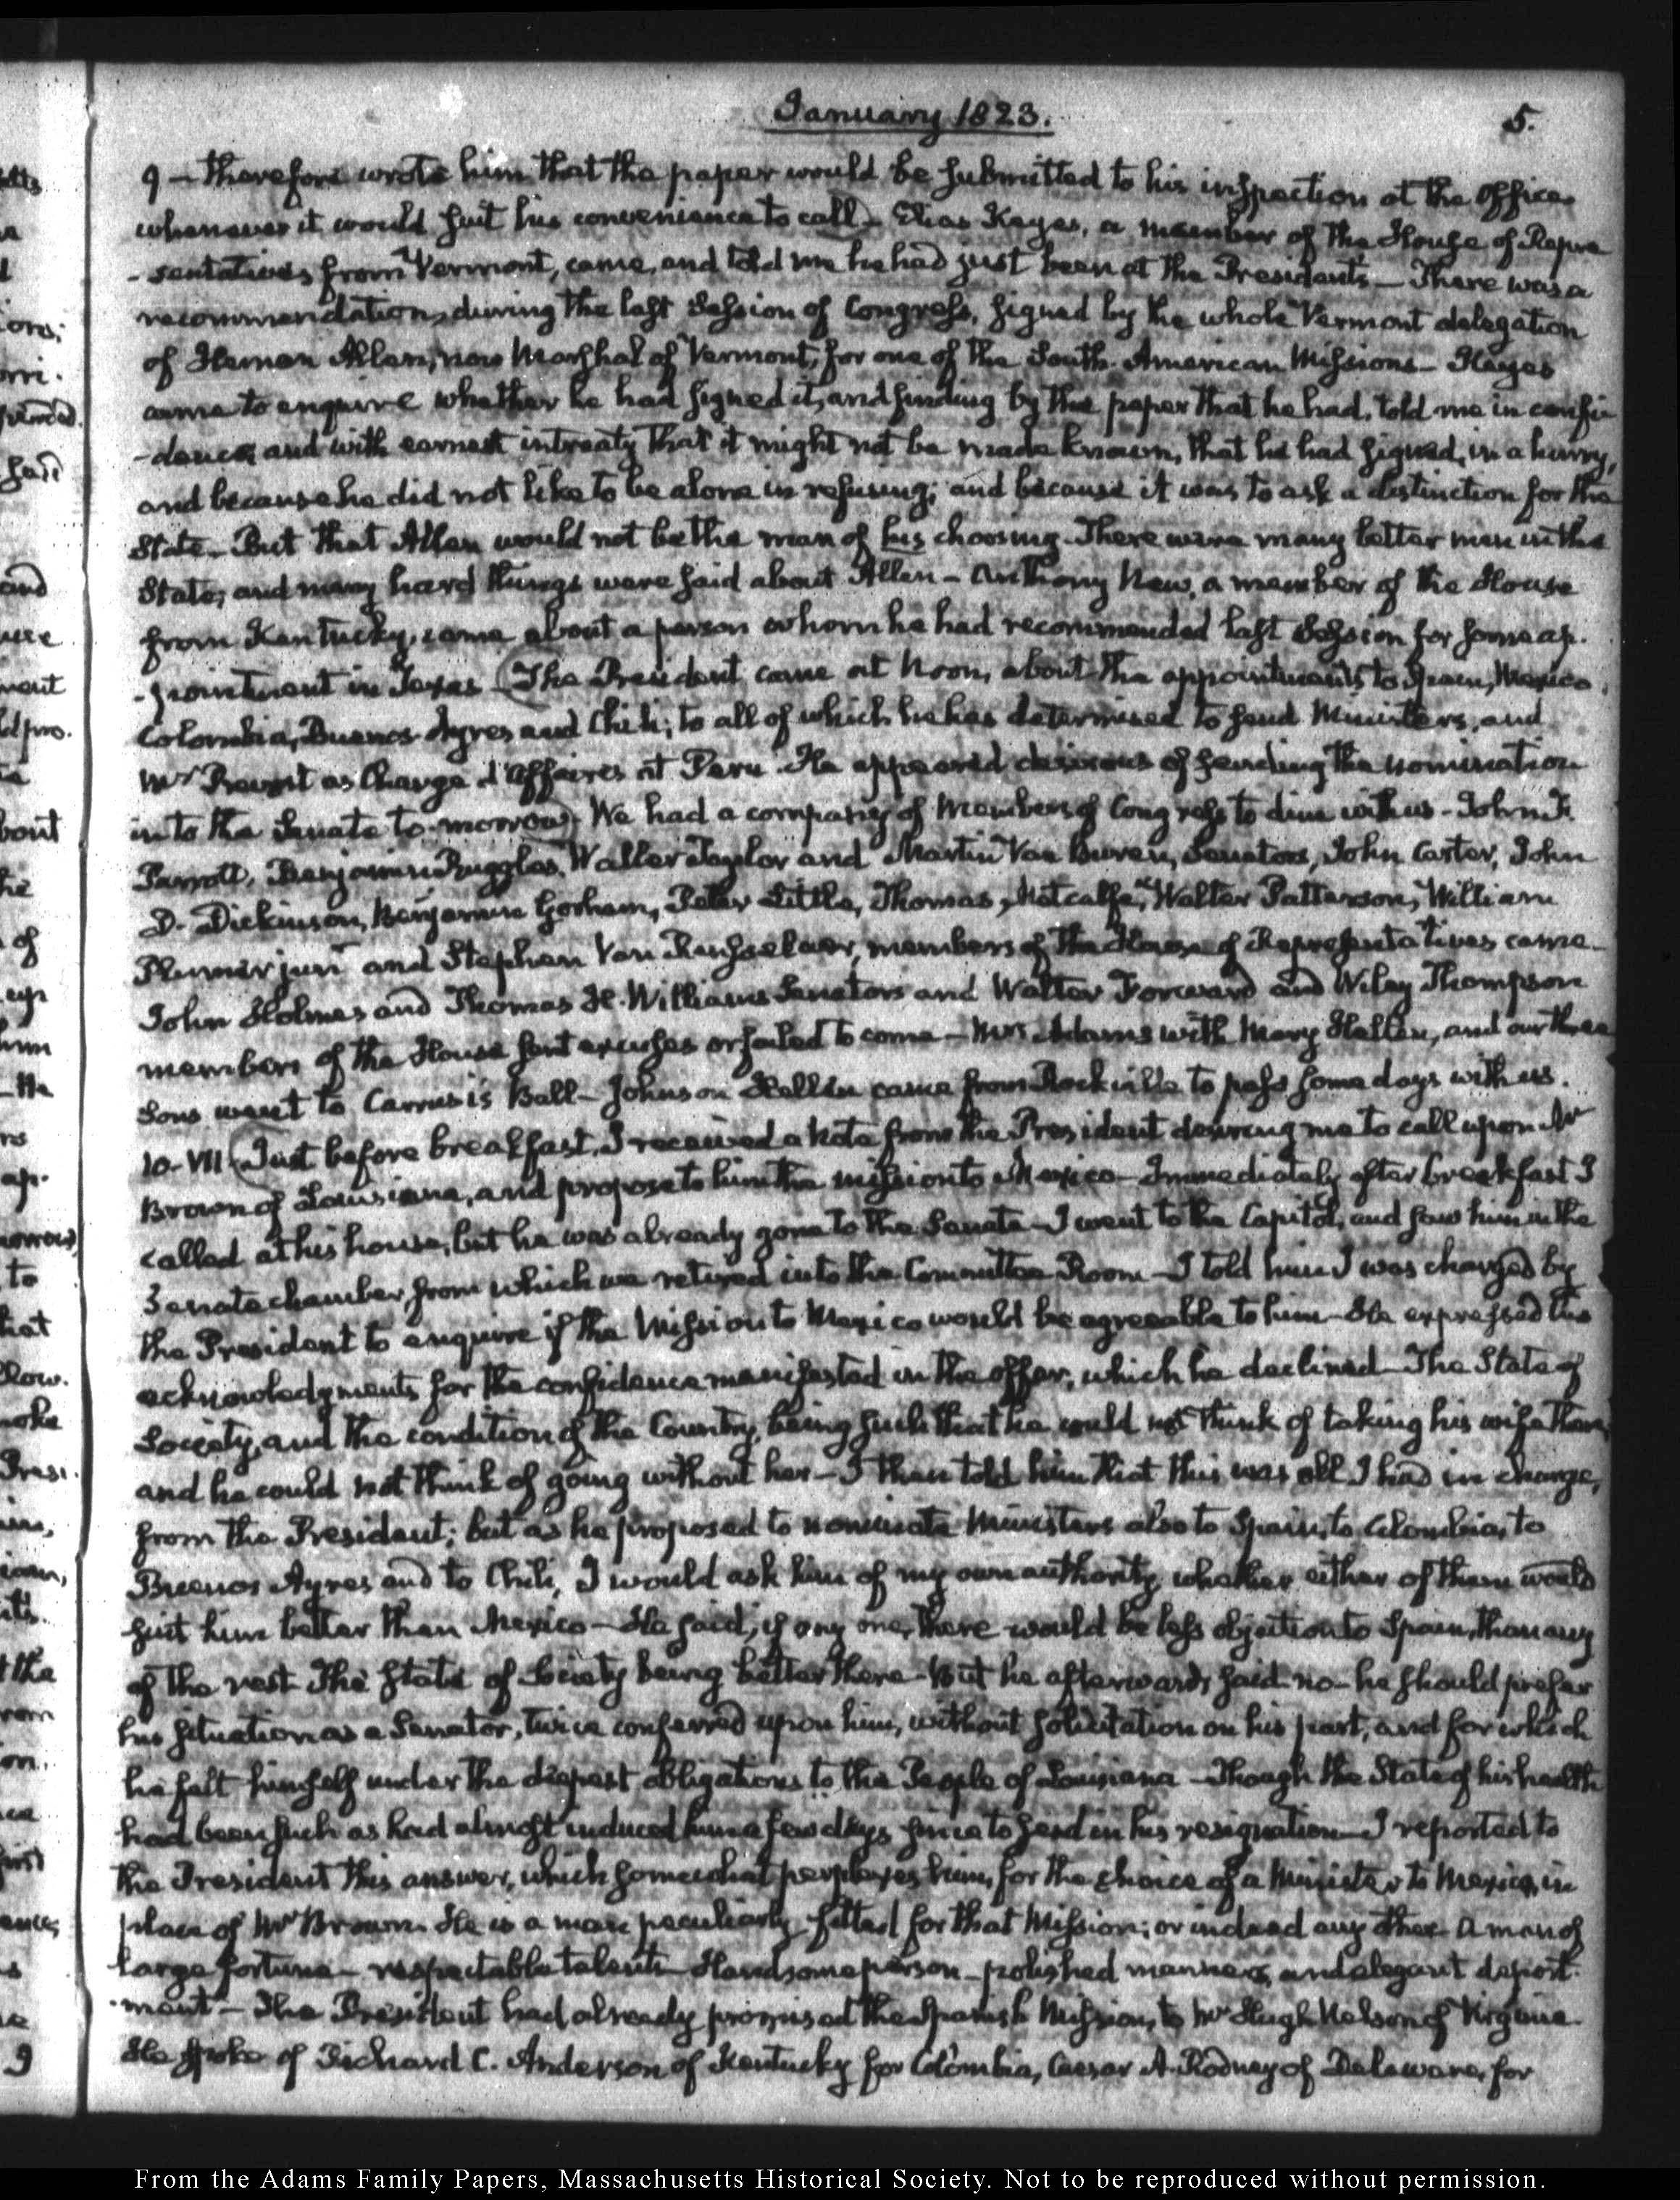 January 1823.
5.
9 — therefore wrote him that the paper would be submitted to his inspection at the office
whenever it would suit his convenience to call — Elias Keyes, a member of the House of Repre
-sentatives from Vermont, came, and told me he had just been at the President's — There was a
recommendation, during the last Session of Congress, signed by the whole Vermont delegation
of Heman Allen, now Marshal of Vermont, for one of the South-American Missions — Keyes
came to enquire whether he had signed it, and finding by the paper that he had, told me in confi
-dence, and with earnest intreaty that it might not be made known, that he had signed, in a hurry,
and because he did not like to be alone in refusing; and because it was to ask a distinction for the
State — But that Allen would not be the man of his choosing — There were many better men in the
State, and many hard things were said about Allen — Anthony New, a member of the House
from Kentucky, came about a person whom he had recommended last Session for some ap-
-pointment in Texas — (The President came at Noon, about the appointments to Spain, Mexico,
Colombia, Buenos-Ayres and Chili; to all of which he has determined to send Ministers, and
Mr Prevost as Charge d'Affaires at Peru. He appeared desirous of sending the nomination
in to the Senate to-morrow) We had a company of Members of Congress to dine with us — John F.
Parrott, Benjamin Ruggles, Waller Taylor and Martin Van Buren, Senators, John Carter, John
D. Dickinson, Benjamin Gorham, Peter Little, Thomas Metcalfe, Walter Patterson, William
Plumer junr and Stephen Van Rensselaer, members of the House of Representatives came —
John Holmes and Thomas H. Williams Senators and Walter Forward and Wiley Thompson
members of the House sent excuses or failed to come — Mrs Adams with Mary Hellen, and our three
Sons went to Carrusi's Ball — Johnson Hellen came from Rockville to pass some days with us.
10 - VII (Just before breakfast, I received a Note from the President desiring me to call upon Mr
Brown of Louisiana, and propose to him the mission to Mexico — Immediately after breakfast I
called at his house, but he was already gone to the Senate — I went to the Capitol, and saw him in the
Senate chamber, from which we retired into the Committee Room — I told him I was charged by
the President to enquire if the Mission to Mexico would be agreeable to him — He expressed his
acknowledgments for the confidence manifested in the offer, which he declined — The State of
Society, and the condition of the Country, being such that he could not think of taking his wife there
and he could not think of going without her — I then told him that this was all I had in charge,
from the President; but as he proposed to nominate Ministers also to Spain, to Colombia, to
Buenos Ayres and to Chili, I would ask him of my own authority whether either of them would
suit him better than Mexico — He said, if any one, there would be less objection to Spain, than any
of the rest The State of Society being better there — But he afterwards said no — he should prefer
his situation as a Senator, twice conferred upon him, without solicitation on his part, and for which
he felt himself under the deepest obligations to the People of Louisiana — Though the State of his health
had been such as had almost induced him a few days since to send in his resignation — I reported to
the President this answer, which somewhat perplexes him, for the choice of a Minister to Mexico, in
place of Mr Brown. He is a man peculiarly fitted for that Mission; or indeed any other — A man of
large fortune — respectable talents — Handsome person — polished manners, and elegant deport-
-ment — The President had already promised the Spanish Mission, to Mr Hugh Nelson of Virginia
He spoke of Richard C. Anderson of Kentucky for Colombia, Caesar A. Rodney of Delaware, for
From the Adams Family Papers, Massachusetts Historical Society. Not to be reproduced without permission.